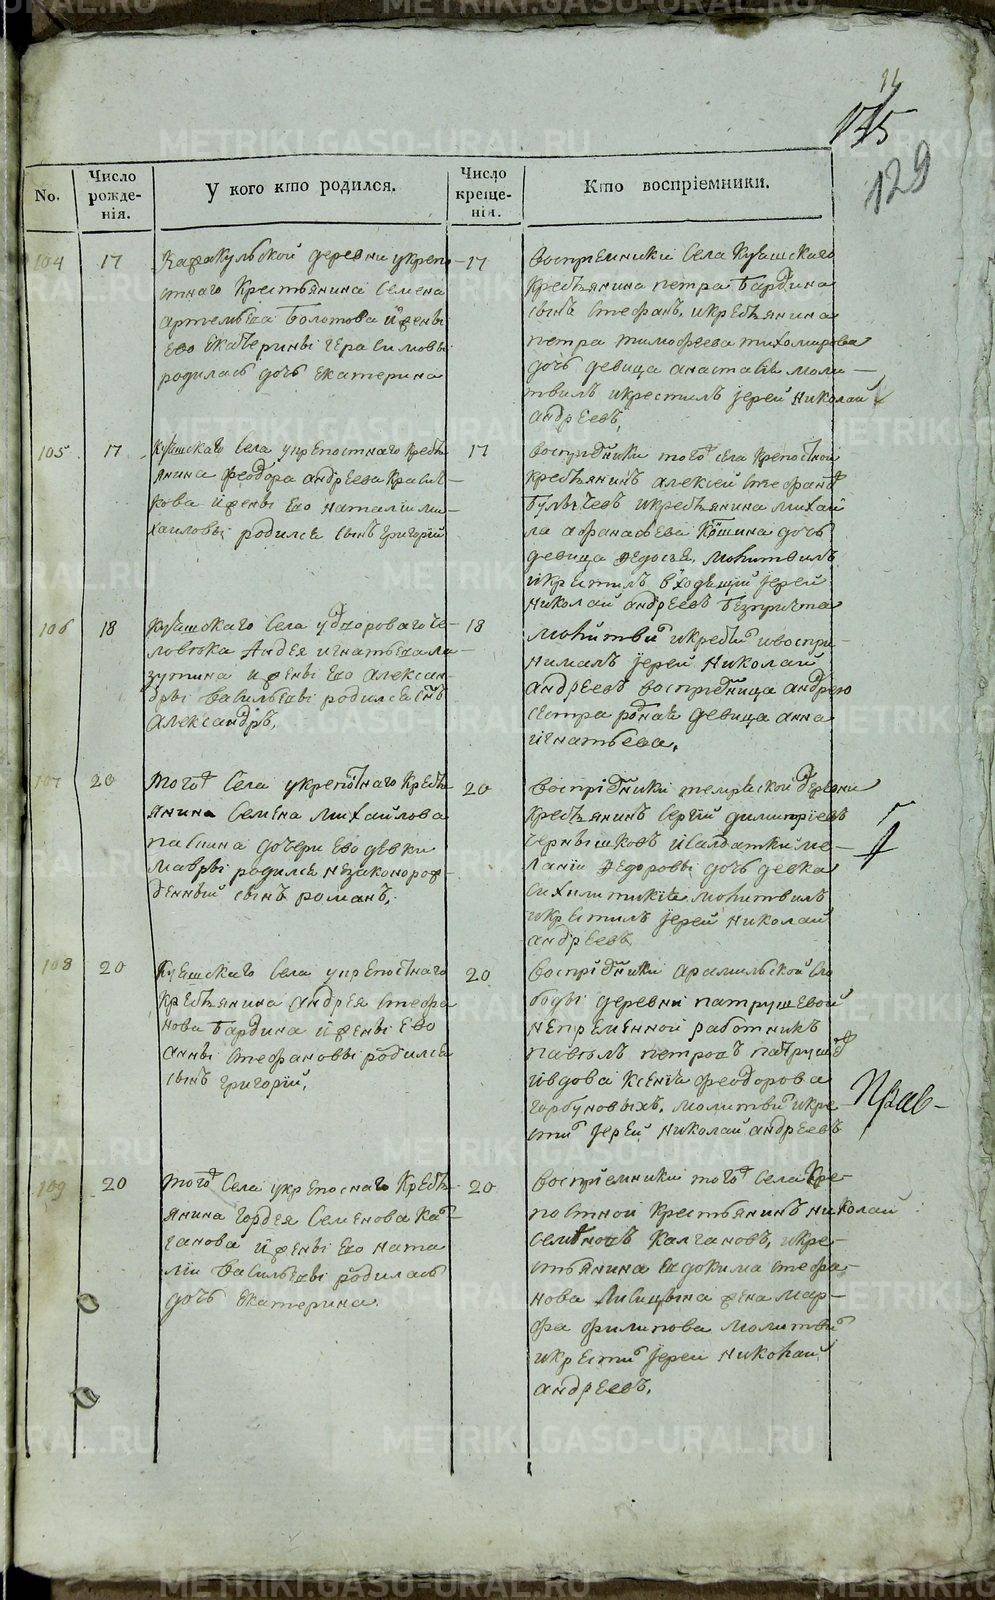 175
129
No.
Число рожденія.
У кого кто родился.
Число крещенія.
Кто воспріемники.
104
17
Каракульской деревни у крепо
стнаго крестьянина Семена
артемьева Болотова и жены
ево екатерины герасимовы
родилась дочь екатерина
17
воспріемники села Куяшскаго
крестьянина петра Бардина
сынъ стефанъ, и крестьянина
петра тимофеева тихомирова
дочь девица анастасія моли
твилъ и крестилъ іерей николай
андреевъ,
105
17
Куяшскаго села у крепостнаго кресть
янина феодора андреева
и жены ево наталіи ми
хаиловы родился сынъ григорій
17
воспріемники того села крепостной
крестьянинъ алексей стефановъ
и крестьянина михай
ла афанасьева дочь
девица федосья, молитвилъ
и крестилъ іерей
николай андреевъ
106
18
Куяшскаго села у двороваго че
ловека Андрея игнатьева ла
зутина и жены ево алексан
дры васильевы родился сынъ
александръ,
18
молитвил и крестил и воспри
нималъ іерей николай
андреевъ воспріемница андрею
сестра родная девица анна
игнатьева,
107
20
того села у крепостнаго кресть
янина семена михайлова
дочери ево девки
мавры родился незаконорож
денный сынъ романъ,
20
воспріемники деревни
крестьянинъ сергій димитріевъ
чернышковъ и салдатки ме
ланіи федоровы дочь девка
молитвилъ
и крестилъ іерей николай
андреевъ
108
20
Куяшскаго села у крепостнаго
крестьянина андрея стефа
нова Бардина и жены ево
анны стефановы родился
сынъ григорій,
20
воспріемники арамильской сло
боды деревни патрушевой
непременной работникъ
павелъ петровъ патрушев
и вдова ксенія феодорова
горбуновыхъ, молитвил и кре
стил іерей николай андреевъ
109
20
того села у крепоснаго кресть
янина гордея семенова Кал
ганова и жены ево ната
ліи васильевы родилась
дочь екатерина.
20
воспріемники того села кре
постной крестьянинъ николай
семеновъ калгановъ, и кре
стьянина евдокима стефа
нова жена мар
фа филипова молитвил
и крестил іерей николай
андреевъ,
METRIKI.GASO-URAL.RU